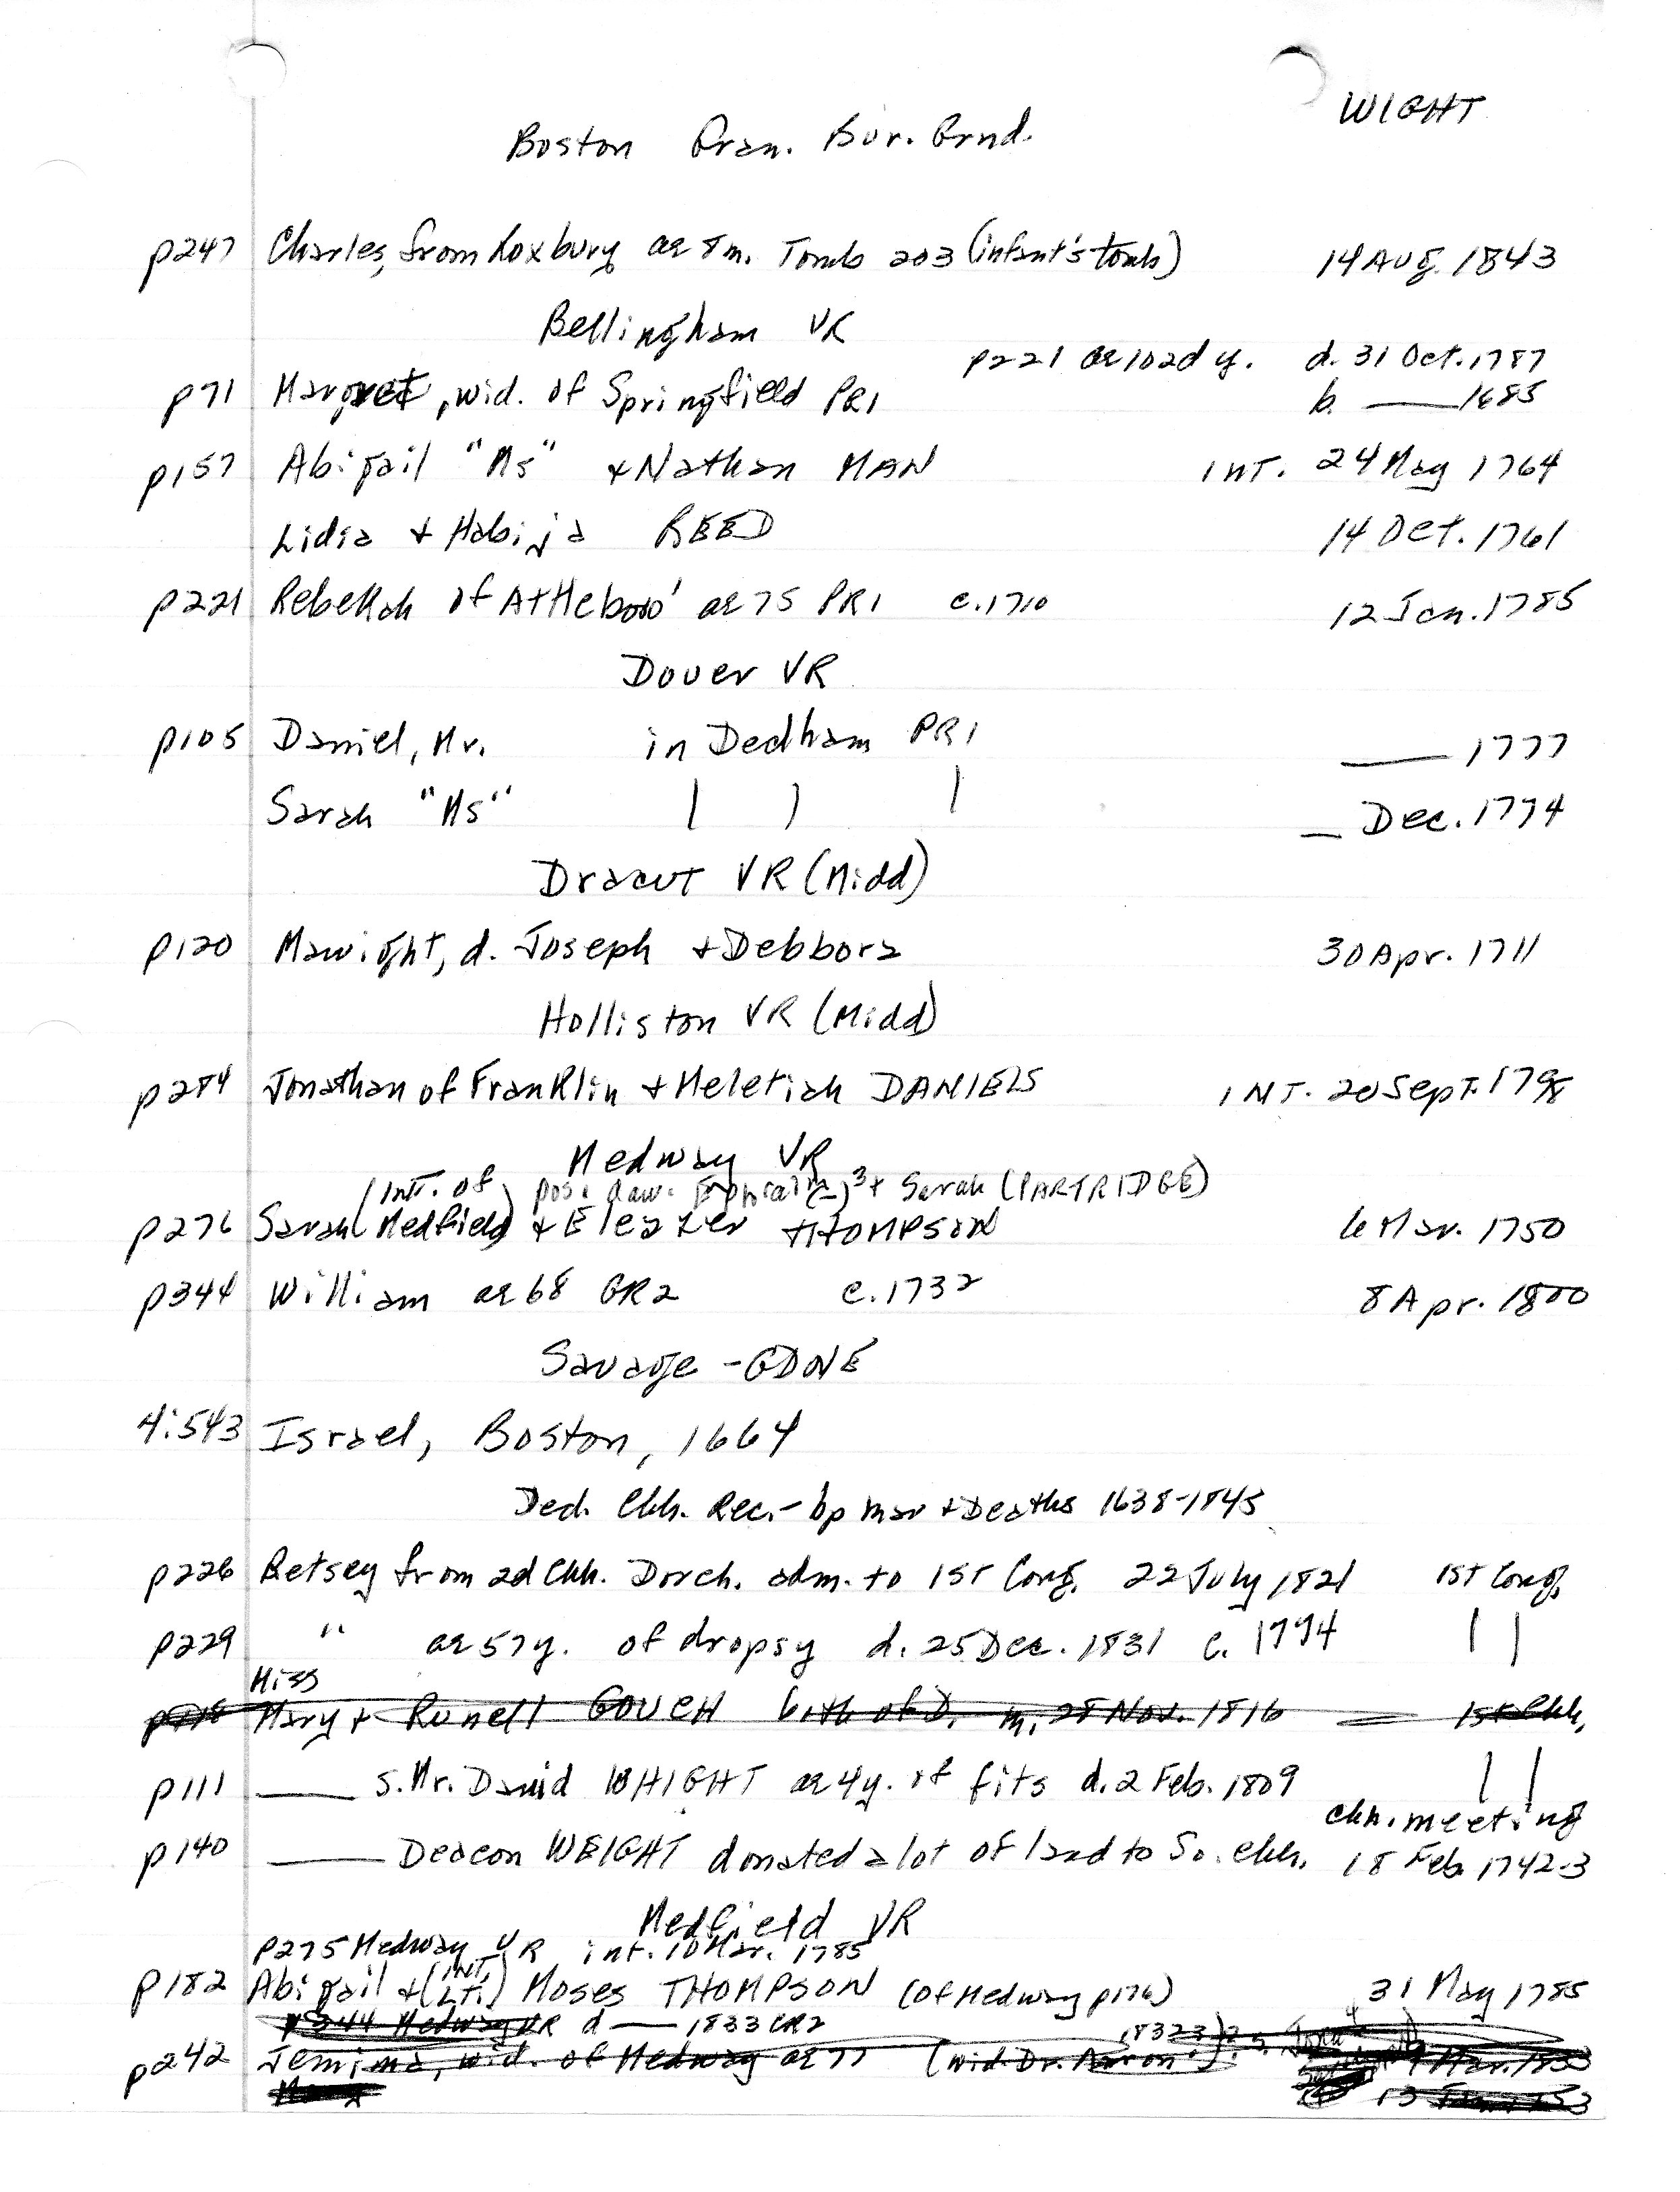 WIGHT
Boston Gran. Bur. Grnd.
p247 Charles, from Roxbury ae 8m. Tomb 203 (infant's tomb) 14 Aug. 1843
Bellingham VR
p221 ae 102d y. d. 31 Oct. 1787
p71 Margret, wid. of Springfield PR1 b. —— 1685
p157 Abigail "Ms" + Nathan MAN INT. 24 May 1764
Lidia + Habija REED 14 Oct. 1761
p221 Rebekah of Attleboro' ae 75 PR1 c. 1710 12 Jan. 1785
Dover VR
p105 Daniel, Mr. in Dedham PR1 —— 1777
Sarah "Ms" | | | — Dec. 1774
Dracut VR (Midd)
p120 Mawight, d. Joseph + Debbora 30 Apr. 1711
Holliston VR (Midd)
p284 Jonathan of Franklin + Meletiah DANIELS INT. 20 Sept. 1798
Medway VR
(int. of) pos. dau. Ephraim (-)3 + Sarah (PARTRIDGE)
p276 Sarah (Medfield) + Eleazer THOMPSON 6 Mar. 1750
p344 William ae 68 GR2 c. 1732 8 Apr. 1800
Savage - GDNE
4:543 Israel, Boston, 1664
Ded. Chh. Rec. - bp mar + Deaths 1638-1845
p226 Betsey from 2d Chh. Dorch. adm. to 1st Cong. 22 July 1821 1st Cong.
p229 " ae 57y. of dropsy d. 25 Dec. 1831 c. 1774 | |
Miss
Mary + Runell GOUCH both of D. m. 28 Nov. 1816 — 1st Chh.
p111 —— s. Mr. David WHIGHT ae 4y. of fits d. 2 Feb. 1809 | |
chh. meeting
p140 —— Deacon WEIGHT donated a lot of land to So. Chh. 18 Feb. 1742-3
Medfield VR
p275 Medway VR int. 10 Mar. 1785
p182 Abigail + (INT. LT.) Moses THOMPSON (of Medway p176) 31 May 1785
p344 Medway VR d —— 1833 GR2
p242 Jemima, wid. of Medway ae 77 (wid. Dr. Aaron) 9 Mar. 1833
13